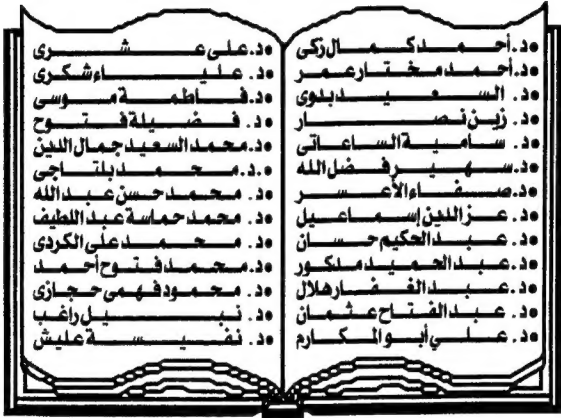 د. أحمد كمال زكى
د. أحمد مختار عمر
د. السعيد بدوى
د. زين نصار
د. سامية الساعاتى
د. سهير فضل الله
د. صفاء الأعسر
د. عز الدين إسماعيل
د. عبد الحكيم حسان
د. عبد الحميد مدكور
د. عبد الغفار هلال
د. عبد الفتاح عثمان
د. على أبو المكارم
د. على عشرى
د. علياء شكرى
د. فاطمة موسى
د. فضيلة فتوح
د. محمد السعيد جمال الدين
د. محمد بلتاجى
د. محمد حسن عبد الله
د. محمد حماسة عبد اللطيف
د. محمد على الكردى
د. محمد فتوح أحمد
د. محمود فهمى حجازى
د. نبيل راغب
د. نفيسة عليش